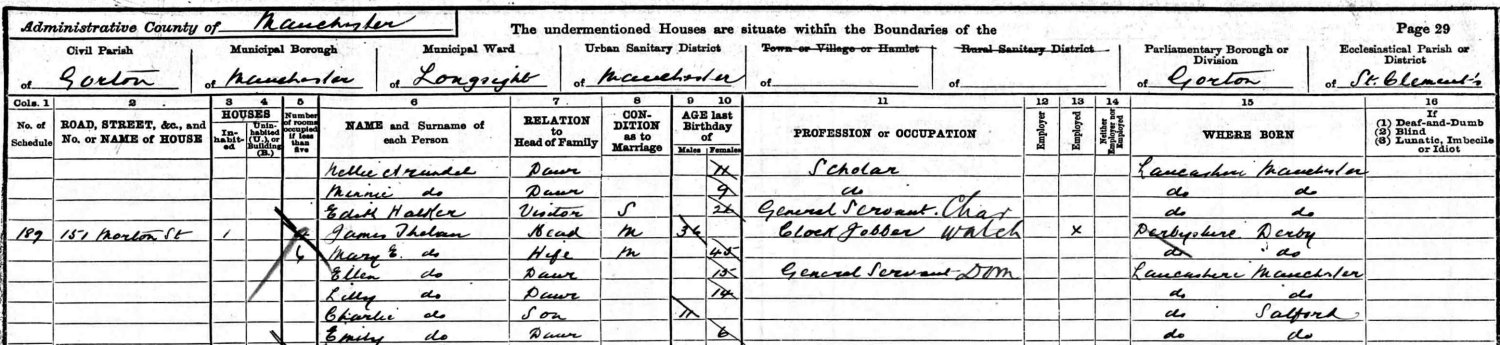 Administrative County of Manchester
The undermentioned Houses are situate within the Boundaries of the
Page 29
Civil Parish of Gorton
Municipal Borough of Manchester
Municipal Ward of Longsight
Urban Sanitary District of Manchester
Town or Village or Hamlet of
Rural Sanitary District of
Parliamentary Borough or Division of Gorton
Ecclesiastical Parish or District of St. Clement's
Cols. 1 2 3 4 5 6 7 8 9 10 11 12 13 14 15 16
No. of Schedule
ROAD, STREET, &c., and No. or NAME of HOUSE
HOUSES
In-habit-ed
Unin-habited (U.), or Building (B.)
Number of rooms occupied if less than five
NAME and Surname of each Person
RELATION to Head of Family
CON-DITION as to Marriage
AGE last Birthday of
Males Females
PROFESSION or OCCUPATION
Employer
Employed
Neither Employer nor Employed
WHERE BORN
If
(1) Deaf-and-Dumb
(2) Blind
(3) Lunatic, Imbecile or Idiot
Nellie Arundel Daur 11 Scholar Lancashire Manchester
Minnie do Daur 9 do do do
Edith Visitor S General Servant. Char do do
189 151 Morton St 1 James Head M 36 Clock Jobber Watch x Derbyshire Derby
Mary E. do Wife M 45 do do
Ellen do Daur 15 General Servant Dom Lancashire Manchester
Lilly do Daur 14 do do
Charlie do Son 11 do Salford
Emily do Daur 6 do do